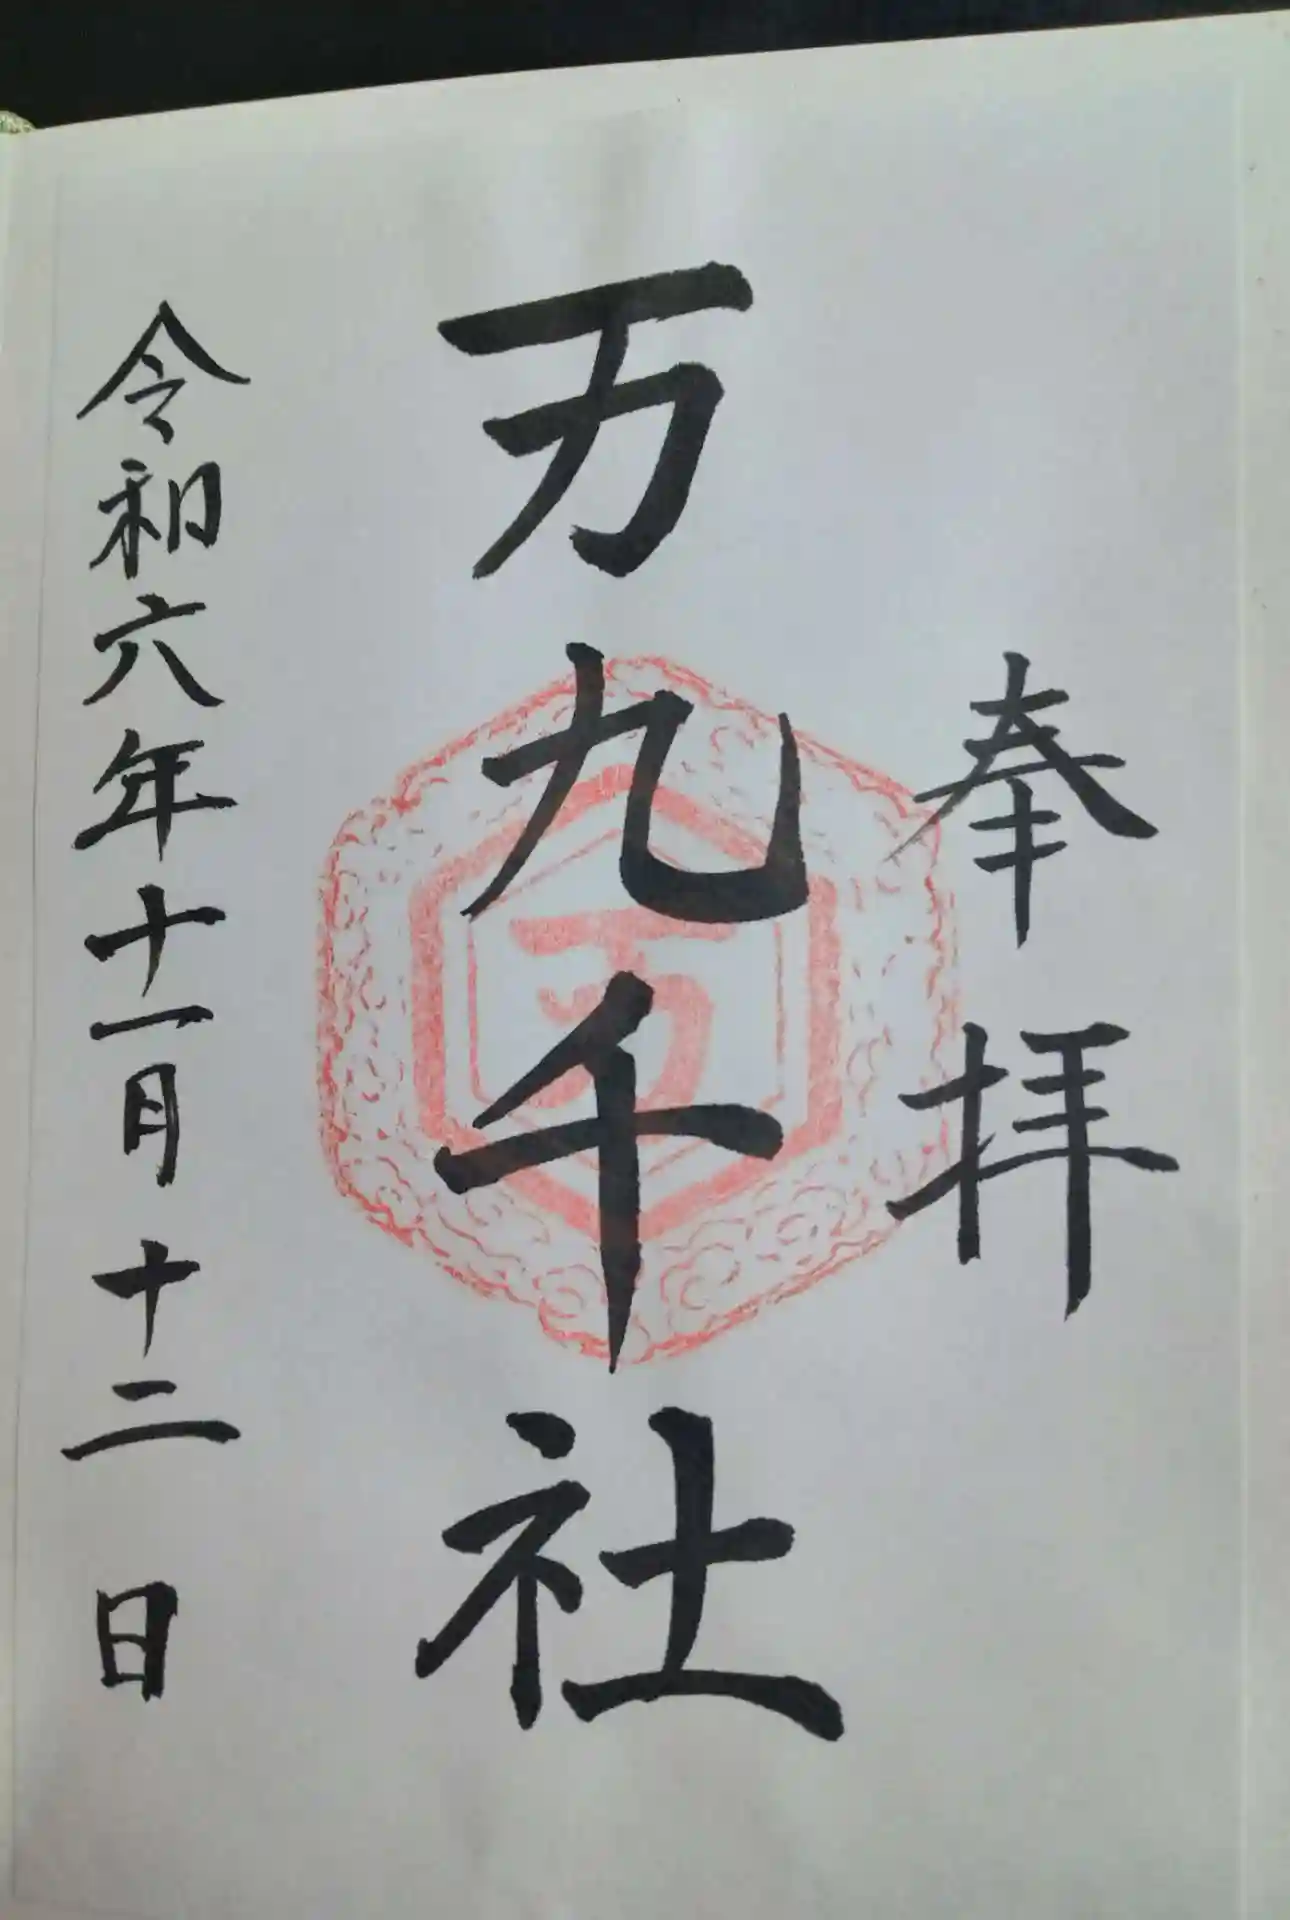 奉拝
万九千社
万
令和六年十一月十二日